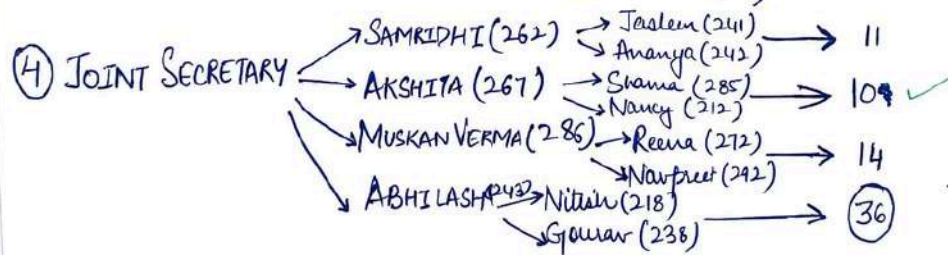 ④ JOINT SECRETARY
SAMRIDHI (262) → Jasleen (241) → 11
Ananya (242)
AKSHITA (267) → Shama (285) → 10 ✓
Nancy (212)
MUSKAN VERMA (286) → Reena (272) → 14
Navpreet (292)
ABHILASH (243) → Nitish (218) → 36
Gourav (238)